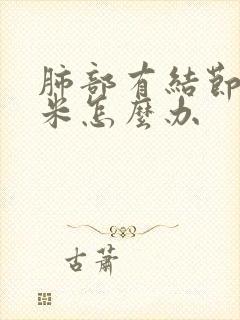 肺部有結節
米怎麼办
古蕭